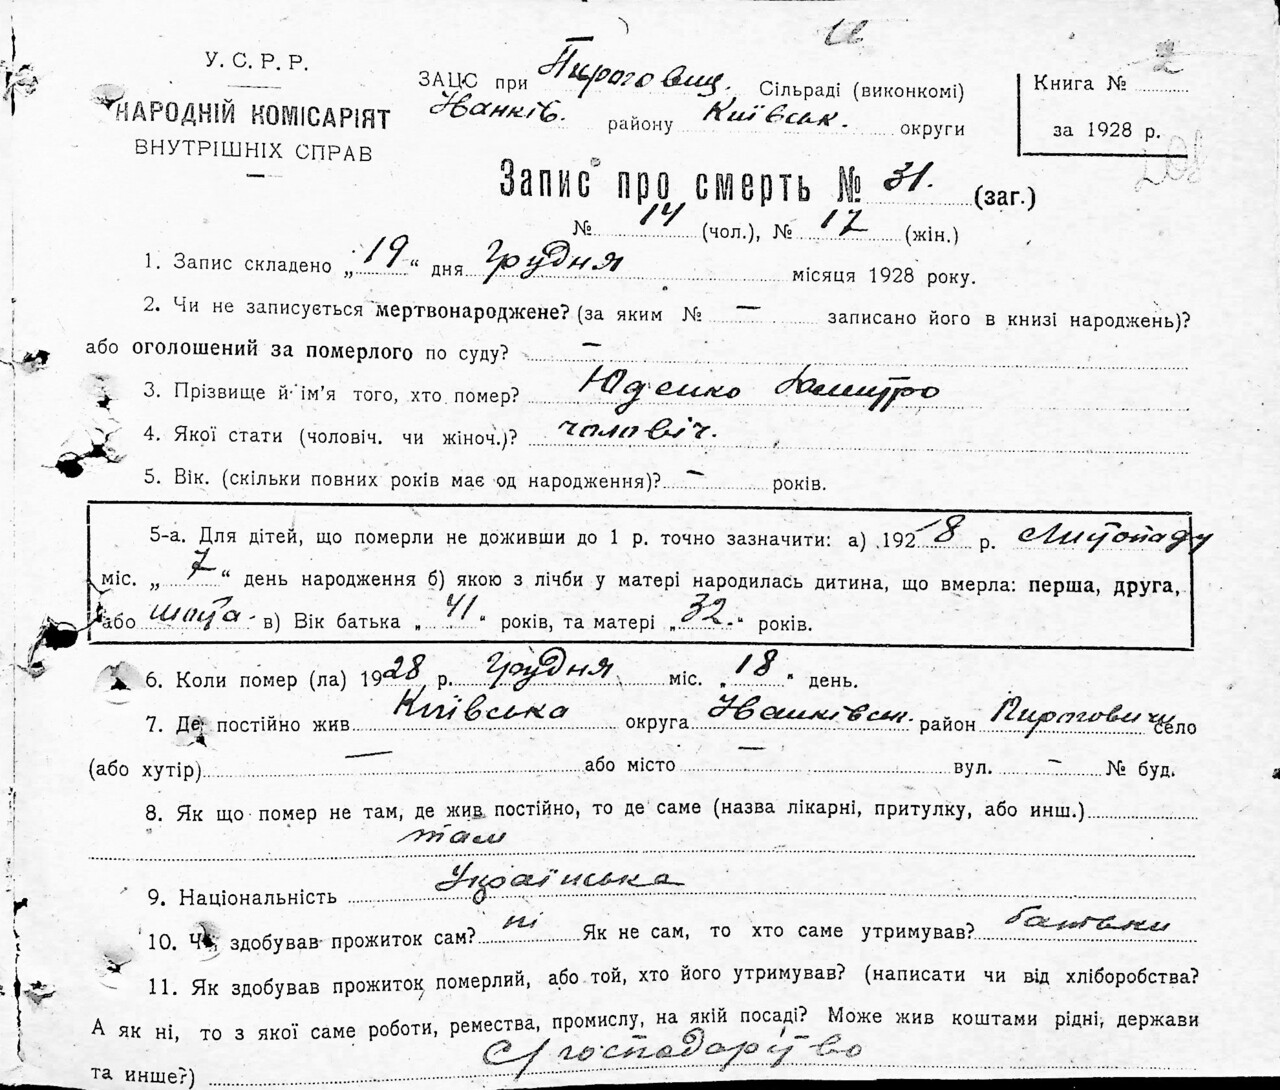 У. С. Р. Р.
НАРОДНІЙ КОМІСАРІЯТ
ВНУТРІШНІХ СПРАВ
ЗАЦС при Пирогович. Сільраді (виконкомі)
Іванків. району Київськ. округи
Книга № 2
за 1928 р.
Запис про смерть № 31. (заг.)
№ 14 (чол.), № 17 (жін.)
1. Запис складено „19“ дня Грудня місяця 1928 року.
2. Чи не записується мертвонароджене? (за яким № — записано його в книзі народжень)?
або оголошений за померлого по суду? —
3. Прізвище й ім’я того, хто помер? Юденко Дмитро
4. Якої статі (чоловіч. чи жіноч.)? чоловіч.
5. Вік. (скільки повних років має од народження)? — років.
5-а. Для дітей, що померли не доживши до 1 р. точно зазначити: а) 1928 р. Листопаду
міс. „7“ день народження б) якою з лічби у матері народилась дитина, що вмерла: перша, друга,
або шоста. в) Вік батька „41“ років, та матері „32.“ років.
6. Коли помер (ла) 1928 р. Грудня міс. „18“ день.
7. Де постійно жив Київська округа Іванківськ. район Пироговичи село
(або хутір) — або місто — вул. — № буд.
8. Як що помер не там, де жив постійно, то де саме (назва лікарні, притулку, або инш.)
там
9. Національність Українська
10. Чи здобував прожиток сам? ні Як не сам, то хто саме утримував? батьки
11. Як здобував прожиток померлий, або той, хто його утримував? (написати чи від хліборобства?
А як ні, то з якої саме роботи, ремества, промислу, на якій посаді? Може жив коштами рідні, держави
та инше?) С/господарство